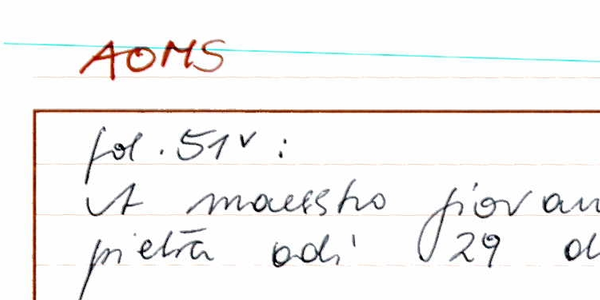 AOMS
fol. 51v:
A maestro giovan
pietra adi 29 d